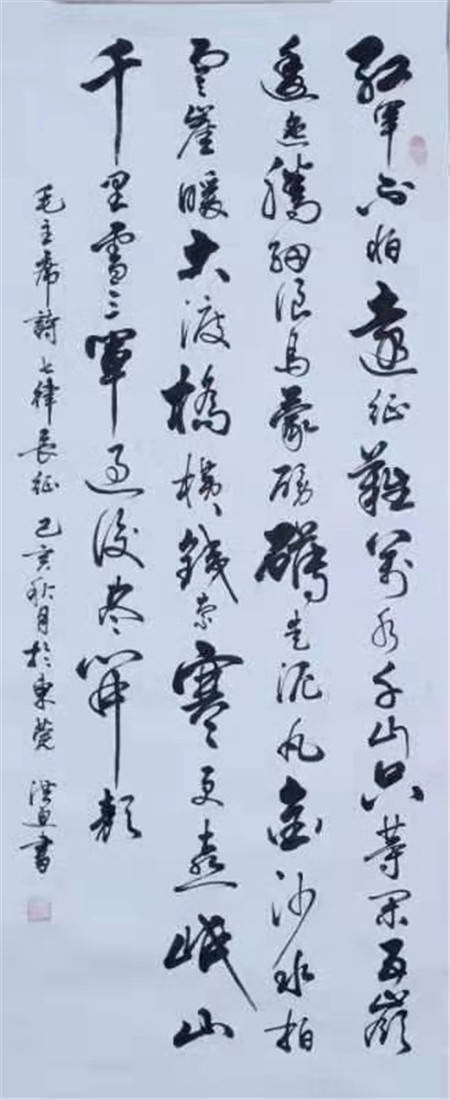 紅軍不怕遠征難萬水千山只等閑五嶺
逶迤騰細浪烏蒙磅礴走泥丸金沙水拍
雲崖暖大渡橋橫鐵索寒更喜岷山
千里雪三軍過後尽開顏
毛主席詩七律長征 己亥秋月於東莞 書